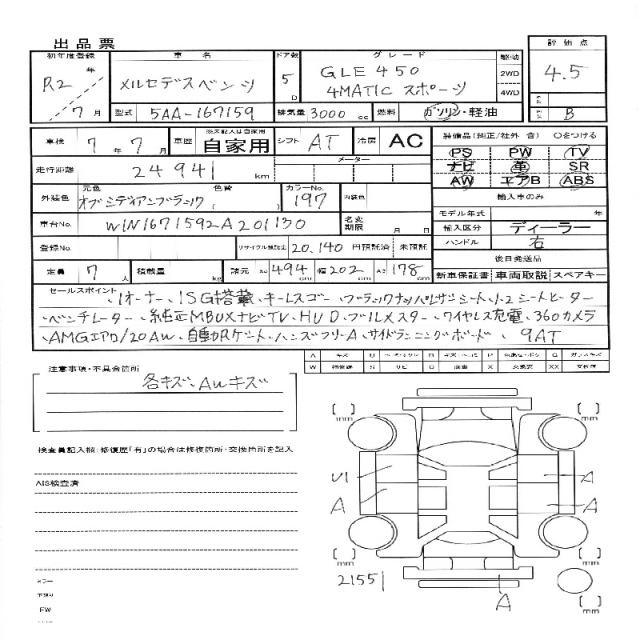 出品票
初年度登録 車名 ドア数 グレード 駆動 評価点
R2年 7月 メルセデスベンツ 5D GLE 450 4MATIC スポーツ 2WD 4WD 4.5
型式 5AA-167159 排気量 3000cc 燃料 ガソリン・軽油 B
車検 7年7月 車歴 自家用 シフト AT 冷房 AC 装備品(純正/社外 含) ○をつける
PS PW TV
ナビ 革 SR
AW エアB ABS
走行距離 24941 km メーター
輸入車のみ
外装色 元色 オブシディアンブラック 色替 カラーNo. 197 内装色
モデル年式 年
車台No. W1N1671592A201130 名変期限 月 日
輸入区分 ディーラー
ハンドル 右
登録No. リサイクル預託金 20,140 円預託済 未預託
後日発送品
定員 7人 積載量 kg 諸元 長 494 幅 202 高 178cm
新車保証書 車両取説 スペアキー
セールスポイント
、1オーナー、ISG搭載、キーレスゴー、ブラックナッパレザーシート、1-2シートヒーター
、ベンチレーター、純正MBUXナビTV、HUD、ブルメスター、ワイヤレス充電、360カメラ
、AMGエアロ/20AW、自動Rゲート、ハンズフリーA、サイドランニングボード、9AT
注意事項・不具合箇所
各キズ、AWキズ
検査員記入欄:修復歴「有」の場合は修復箇所・交換箇所を記入
AIS検査済
mm
mm
U1 A
A A
mm
mm
21551
A
mm